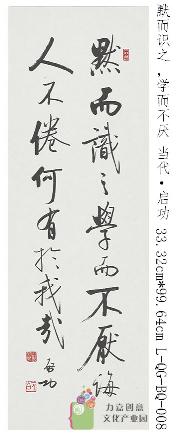 默而識之學而不厭誨
人不倦何有於我哉
啓功
力嘉创意
文化产业园
默而识之,学而不厌 当代·启功 33.32cm*99.64cm L-QG-BQ-008